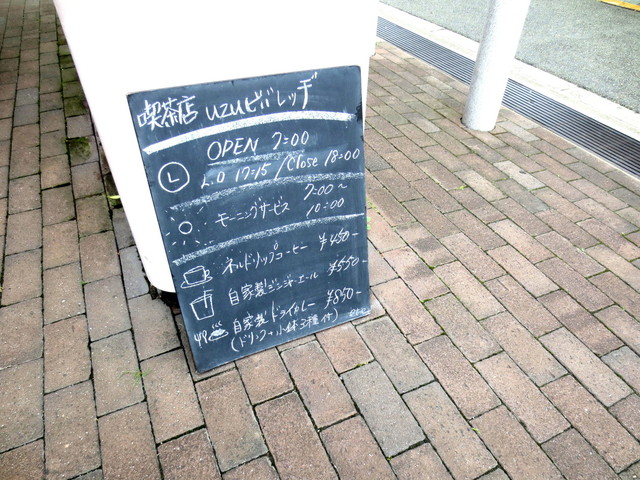 喫茶店 uzuビバレッヂ
OPEN 7:00
L L.O 17:15 / Close 18:00
モーニングサービス 7:00~
10:00
ネルドリップコーヒー ¥450-
自家製ジンジャーエール ¥550-
自家製ドライカレー ¥850-
(ドリンク+小鉢3種付)